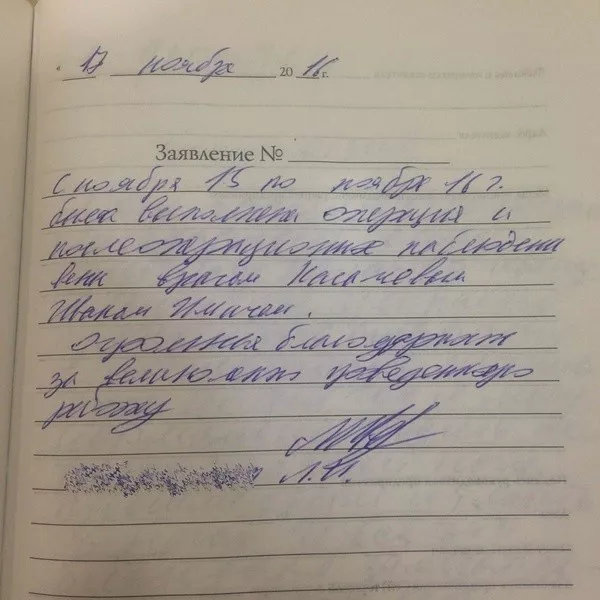 « 17 ноября 20 16 г.
Заявление №
С ноября 15 по ноября 16 г.
была выполнена операция и
послеоперационное наблюдени
врачом

огромная благодарность
за великолепно проведенную
работу
Л.И.